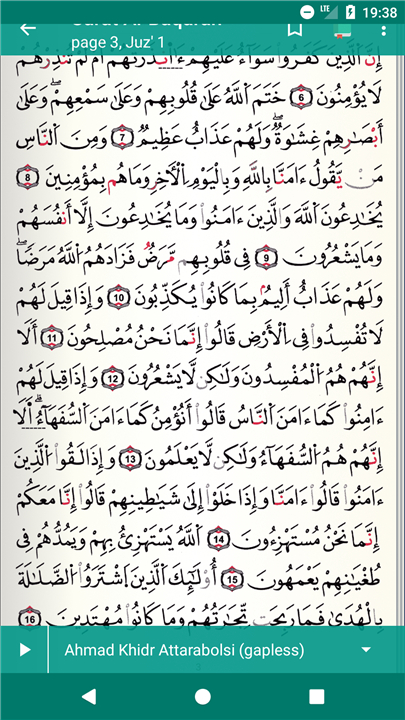 19:38
page 3, Juz' 1
إِنَّ ٱلَّذِينَ كَفَرُوا۟ سَوَآءٌ عَلَيْهِمْ ءَأَنذَرْتَهُمْ أَمْ لَمْ تُنذِرْهُمْ
لَا يُؤْمِنُونَ 6 خَتَمَ ٱللَّهُ عَلَىٰ قُلُوبِهِمْ وَعَلَىٰ سَمْعِهِمْ ۖ وَعَلَىٰٓ
أَبْصَـٰرِهِمْ غِشَـٰوَةٌ ۖ وَلَهُمْ عَذَابٌ عَظِيمٌ 7 وَمِنَ ٱلنَّاسِ
مَن يَقُولُ ءَامَنَّا بِٱللَّهِ وَبِٱلْيَوْمِ ٱلْـَٔاخِرِ وَمَا هُم بِمُؤْمِنِينَ 8
يُخَـٰدِعُونَ ٱللَّهَ وَٱلَّذِينَ ءَامَنُوا۟ وَمَا يَخْدَعُونَ إِلَّآ أَنفُسَهُمْ
وَمَا يَشْعُرُونَ 9 فِى قُلُوبِهِم مَّرَضٌ فَزَادَهُمُ ٱللَّهُ مَرَضًا ۖ
وَلَهُمْ عَذَابٌ أَلِيمٌۢ بِمَا كَانُوا۟ يَكْذِبُونَ 10 وَإِذَا قِيلَ لَهُمْ
لَا تُفْسِدُوا۟ فِى ٱلْأَرْضِ قَالُوٓا۟ إِنَّمَا نَحْنُ مُصْلِحُونَ 11 أَلَآ
إِنَّهُمْ هُمُ ٱلْمُفْسِدُونَ وَلَـٰكِن لَّا يَشْعُرُونَ 12 وَإِذَا قِيلَ لَهُمْ
ءَامِنُوا۟ كَمَآ ءَامَنَ ٱلنَّاسُ قَالُوٓا۟ أَنُؤْمِنُ كَمَآ ءَامَنَ ٱلسُّفَهَآءُ ۗ أَلَآ
إِنَّهُمْ هُمُ ٱلسُّفَهَآءُ وَلَـٰكِن لَّا يَعْلَمُونَ 13 وَإِذَا لَقُوا۟ ٱلَّذِينَ
ءَامَنُوا۟ قَالُوٓا۟ ءَامَنَّا وَإِذَا خَلَوْا۟ إِلَىٰ شَيَـٰطِينِهِمْ قَالُوٓا۟ إِنَّا مَعَكُمْ
إِنَّمَا نَحْنُ مُسْتَهْزِءُونَ 14 ٱللَّهُ يَسْتَهْزِئُ بِهِمْ وَيَمُدُّهُمْ فِى
طُغْيَـٰنِهِمْ يَعْمَهُونَ 15 أُو۟لَـٰٓئِكَ ٱلَّذِينَ ٱشْتَرَوُا۟ ٱلضَّلَـٰلَةَ
بِٱلْهُدَىٰ فَمَا رَبِحَت تِّجَـٰرَتُهُمْ وَمَا كَانُوا۟ مُهْتَدِينَ 16
Ahmad Khidr Attarabolsi (gapless)